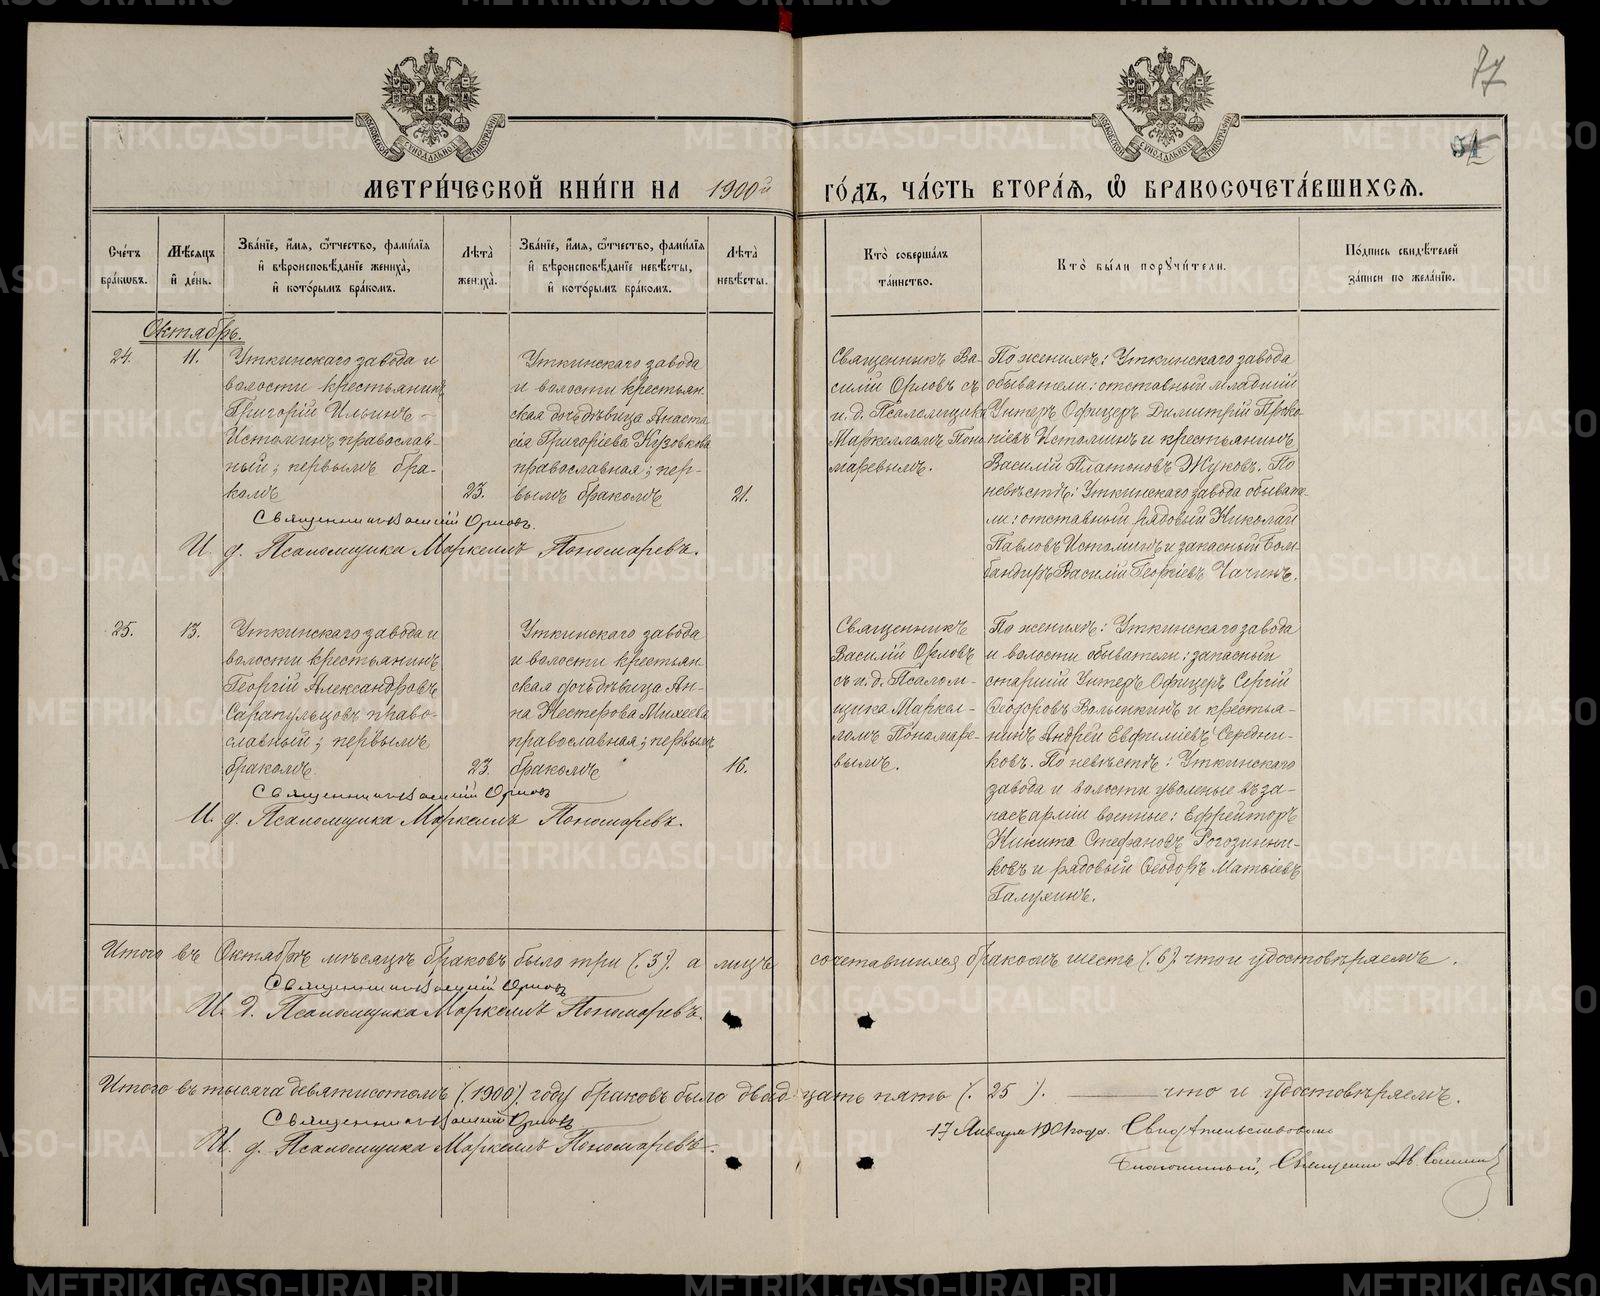 77
51
МЕТРИ́ЧЕСКОЙ КНИ́ГИ НА 1900й ГО́ДЪ, ЧА́СТЬ ВТОРА́Я, Ѡ БРАКОСОЧЕТА́ВШИХСЯ.
Сче́тъ бра́кѡвъ.
Мѣ́сяцъ и́ де́нь.
Зва́нїе, и́мя, ѻ҆́тчество, фами́лїя и҆ вѣроисповѣ́данїе жениха̀, и҆ кото́рымъ бра́комъ.
Лѣ́та жениха̀.
Зва́нїе, и́мя, ѻ҆́тчество, фами́лїя и҆ вѣроисповѣ́данїе невѣ́сты, и҆ кото́рымъ бра́комъ.
Лѣ́та невѣ́сты.
Кто̀ соверша́лъ та́инство.
Кто̀ бы́ли порꙋчи́тели.
По́дпись свидѣ́телей за́писи по жела́нїю.
Октябрь.
24.
11.
Уткинскаго завода и
волости крестьянинъ
Григорій Ильинъ –
Истоминъ православ-
ный; первымъ бра-
комъ
23.
Уткинскаго завода
и волости крестьян
ская дочь дѣвица Анаста
сія Григоріева Кузовкова
православная; пер-
вымъ бракомъ
21.
Священникъ Ва-
силій Орловъ съ
и. д. Псаломщика
Маркелломъ Поно
маревымъ.
По женихѣ: Уткинскаго завода
обыватели: отставный младшій
Унтеръ Офицеръ Димитрій Проко
піевъ Истоминъ и крестьянинъ
Василій Платоновъ Жуковъ. По
невѣстѣ: Уткинскаго завода обывате-
ли: отставный рядовый Николай
Павловъ Истоминъ и запасный Бом-
бандиръ Василій Георгіевъ Чачинъ.
Священникъ Василій Орловъ.
И. д. Псаломщика Маркеллъ Пономаревъ.
25.
13.
Уткинскаго завода и
волости крестьянинъ
Георгій Александровъ
Сарапульцовъ право-
славный; первымъ
бракомъ
23.
Уткинскаго завода
и волости крестьян
ская дочь дѣвица Ан-
на Нестерова Михеева
православная; первымъ
бракомъ
16.
Священникъ
Василій Орловъ
съ и. д. Псалом-
щика Маркел-
ломъ Пономаре-
вымъ.
По женихѣ: Уткинскаго завода
и волости обыватели: запасный
старшій Унтеръ Офицеръ Сергій
Ѳеодоровъ Волынкинъ и крестья-
нинъ Андрей Евфиміевъ Середни-
ковъ. По невѣстѣ: Уткинскаго
завода и волости уволеные въ за-
пасъ арміи военные: Ефрейторъ
Никита Стефановъ Рогозинни-
ковъ и рядовый Ѳеодоръ Матѳіевъ
Галухинъ.
Священникъ Василій Орловъ
И. д. Псаломщика Маркеллъ Пономаревъ.
Итого въ Октябрѣ мѣсяцѣ браковъ было три (. 3). а лицъ сочетавшихся бракомъ шесть (. 6). что и удостовѣряемъ.
Священникъ Василій Орловъ
И. д. Псаломщика Маркеллъ Пономаревъ.
Итого въ тысяча девятисотомъ (. 1900). году браковъ было двадцать пять (. 25 ). что и удостовѣряемъ.
Священникъ Василій Орловъ
И. д. Псаломщика Маркеллъ Пономаревъ.
17 Января 1901 года. Свидѣтельствовано
Благочинный, Священникъ
METRIKI.GASO-URAL.RU